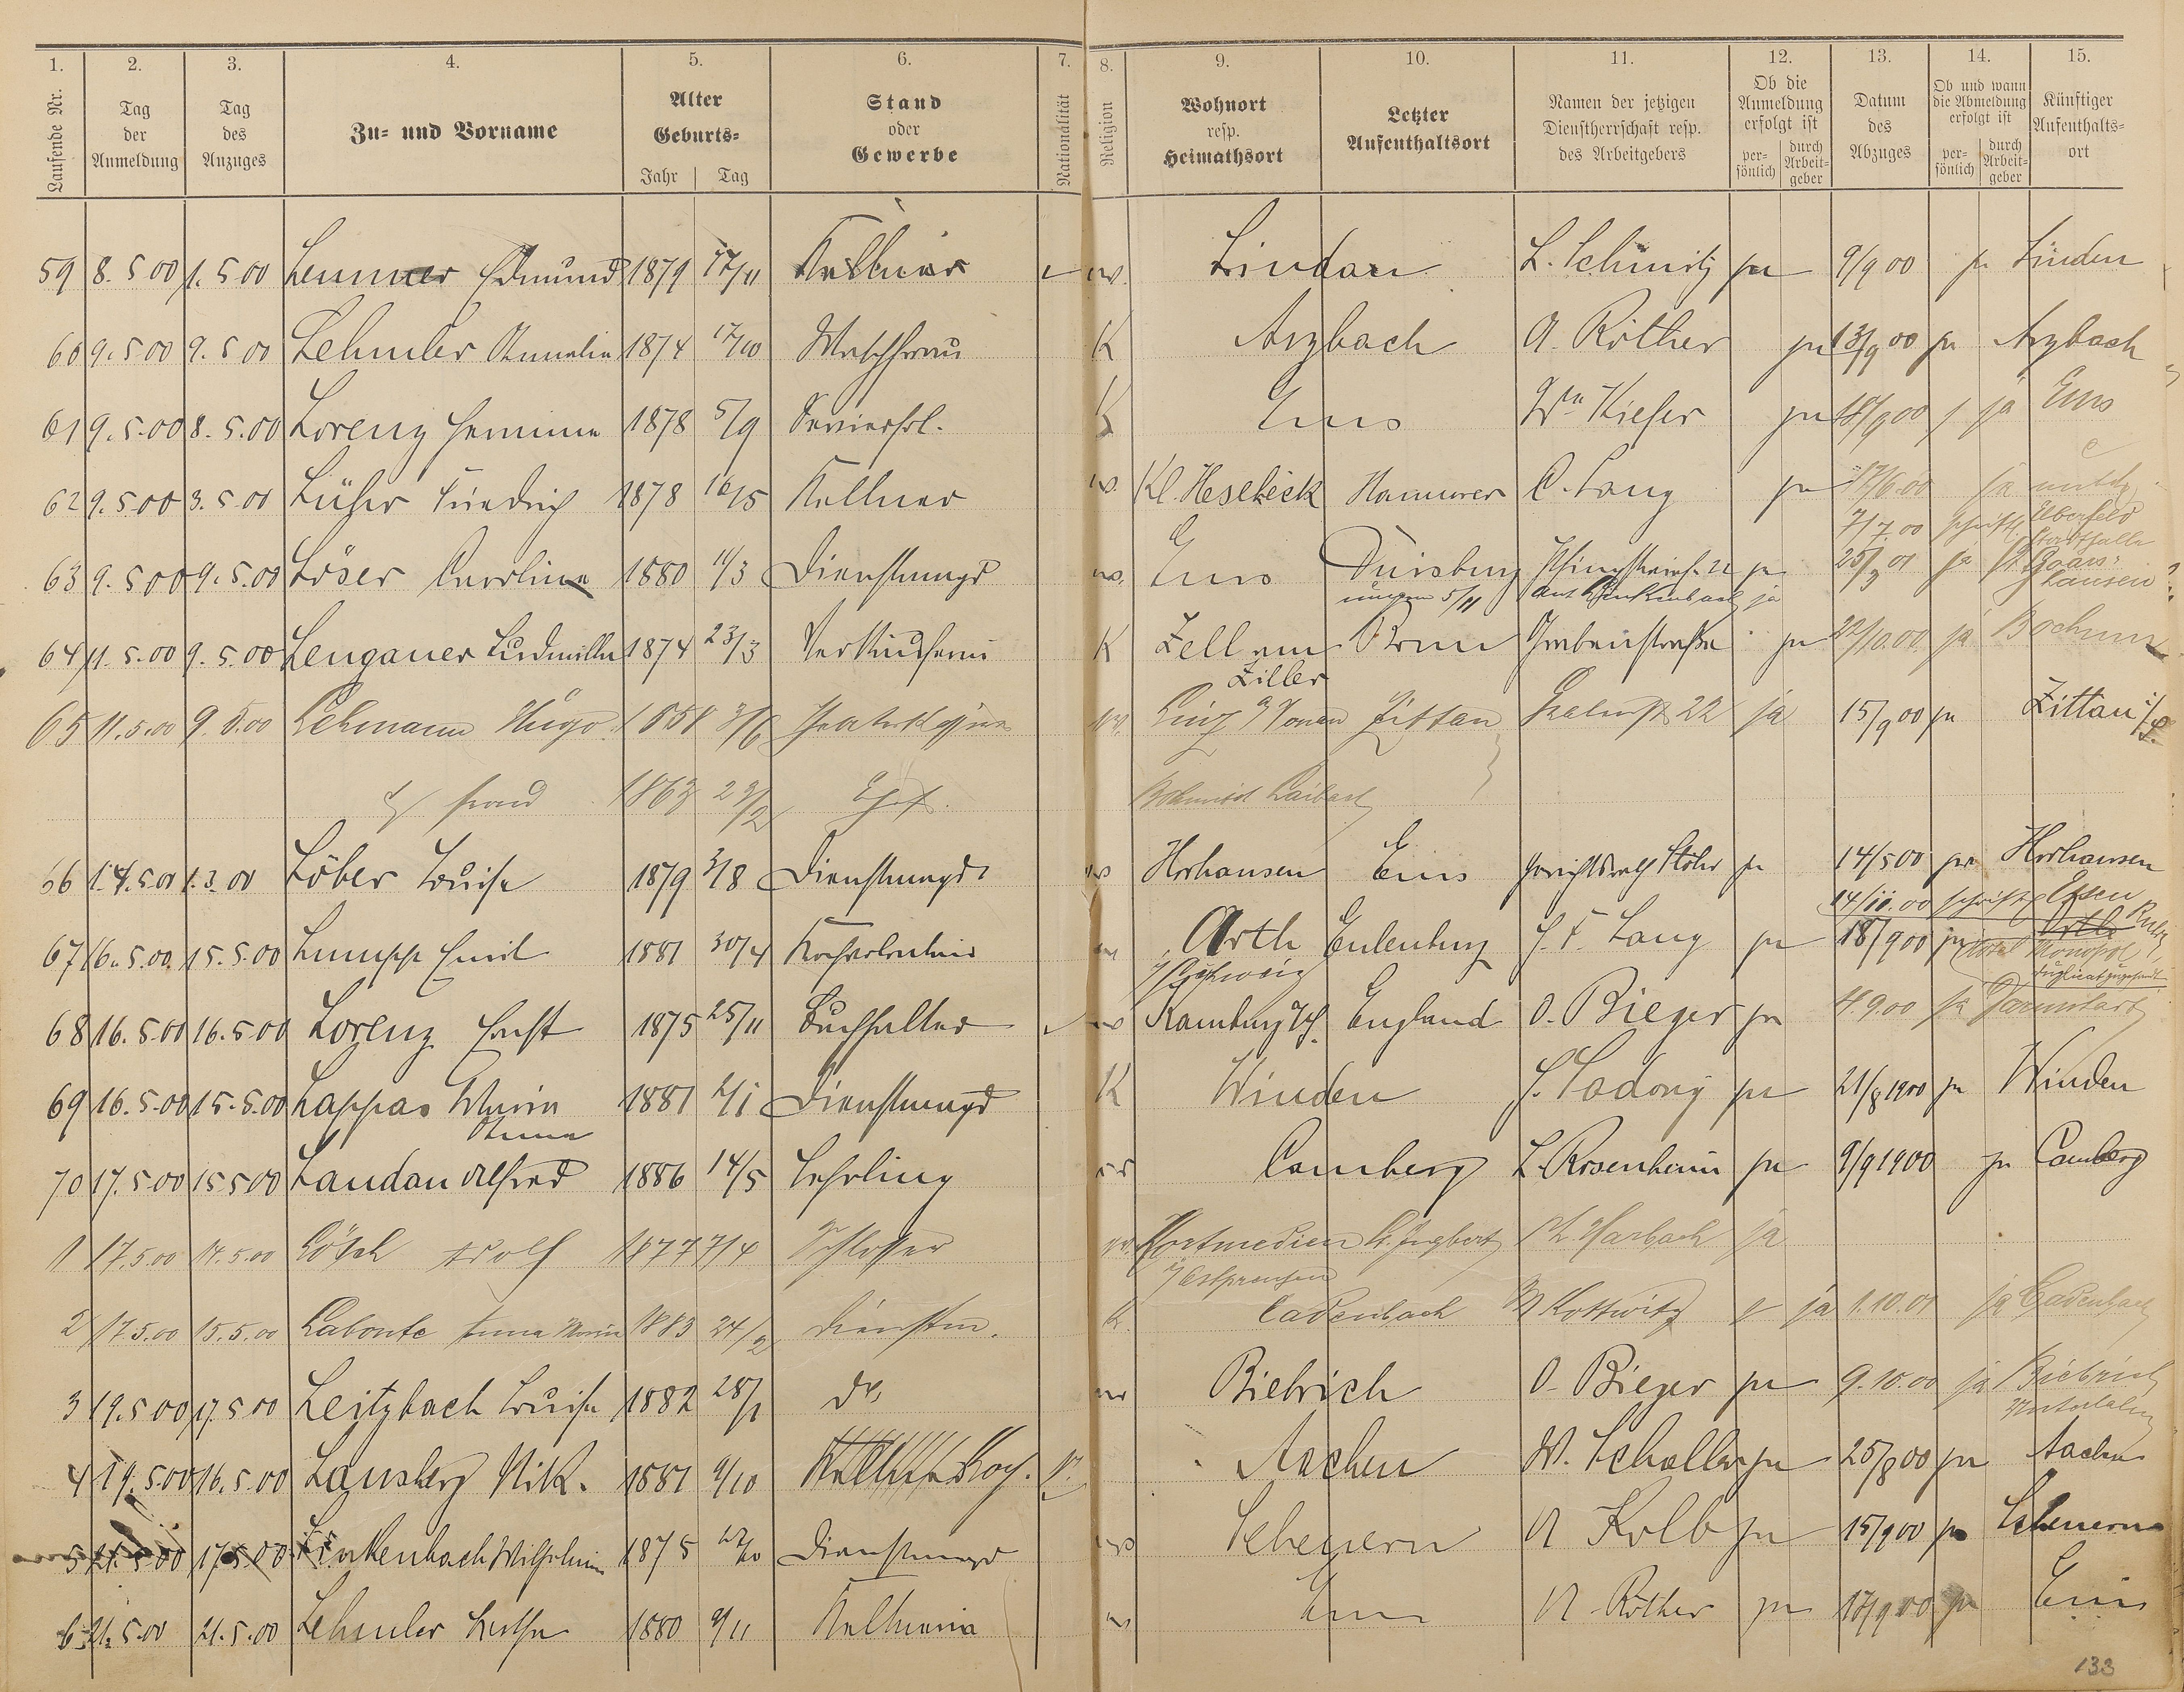 1. 2. 3. 4. 5. 6. 7. 8. 9. 10. 11. 12. 13. 14. 15.
Laufende Nr. Tag der Anmeldung Tag des Anzuges Zu- und Vorname Alter Geburts- Jahr Tag Stand oder Gewerbe Nationalität Religion Wohnort resp. Heimathsort Letzter Aufenthaltsort Namen der jetzigen Dienstherrschaft resp. des Arbeitgebers Ob die Anmeldung erfolgt ist persönlich durch Arbeitgeber Datum des Abzuges Ob und wann die Abmeldung erfolgt ist persönlich durch Arbeitgeber Künftiger Aufenthalts-ort
59 8. 5 00 1. 5 00 Lemmer Edmund 1879 17/11 Kellner Lindau L. Schmitz ja 9/9 00 ja Linden
60 9. 5 00 9. 5 00 Lehmler Annalia 1874 17/10 Waschfrau K Arzbach A. Röther ja 13/9 00 ja Arzbach
61 9. 5. 00 8. 5. 00 Lorenz Hermine 1878 5/9 Servierfrl. K Ems Wn Kiefer ja 18/9 00 ja Ems
62 9. 5. 00 3. 5. 00 Lüher Friedrich 1878 16/5 Kellner Kl. Hesebeck Hannover C. Lang ja 12/6. 00 ja
7/7. 00 schriftl. Elberfeld Stadthalle
63 9. 5 00 9. 5. 00 Löser Caroline 1880 11/3 Dienstmagd Ems Duisburg 22 ja 25/3 01 ja St Goars-
5/11 ja hausen
64 11. 5. 00 9. 5. 00 Lengauer Ludmilla 1874 23/3 Verkäuferin K Zell am Bonn Grabenstraße ja 22/10. 00 ja Bochum
Ziller
65 11. 5. 00 9. 5. 00 Lehmann Hugo 1858 3/6 Linz a/Donau Zittau 22 ja 15/9 00 ja Zittau i/S.
Frau 1863 29/2 Ehefr. Laibach
66 14. 5. 00 1. 3. 00 Löber Louise 1879 3/8 Dienstmagd Horhausen Ems Stöhr ja 14/5 00 ja Horhausen
14/11. 00 schriftl. Essen Ruhr
67 16. 5. 00 15. 5. 00 Lumpp Emil 1881 30/4 Kochvolontair Arth Eulenburg J. F. Lang ja 18/9 00 ja Arth Hotel Monopol
i/Schweiz Duplicat zugesandt
68 16. 5. 00 16. 5. 00 Lorenz Ernst 1875 25/11 Buchhalter Kamburg England O. Bieger ja 4. 9. 00 ja Darmstadt
69 16. 5. 00 15. 5. 00 Lappas Maria 1881 2/1 Dienstmagd K Winden J. Ladony ja 21/8 1900 ja Winden
Anna
70 17. 5. 00 15 5 00 Landau Alfred 1886 14/5 Lehrling Camberg L. Rosenheim ja 9/9 1900 ja Camberg
1 17. 5. 00 14. 5. 00 Lösch Adolf 1877 7/4 Schlosser Kortmedien St. Ingbert Marbach ja
i/Ostpreußen
2 17. 5. 00 15. 5. 00 Labonte Anna Maria 1883 24/2 Dienstm. K. Cadenbach Kottwitz ja 1. 10. 01 ja Cadenbach
3 19. 5 00 17. 5 00 Leitzbach Louise 1882 28/1 do. Biebrich O. Bieger ja 9. 10. 00 ja Biebrich
4 19. 5. 00 16. 5. 00 Lansberg Nik. 1881 9/10 Kellner Koch. Aachen W. Scholler ja 25/8 00 ja Aachen
5 21. 5 00 17. 5. 00 Linkenbach Wilhelmine 1875 22/10 Dienstmagd Scheuern A Kolb ja 15/9 00 ja Scheuern
6 21. 5. 00 21. 5. 00 Lehmler 1880 9/11 Kellnerin Ems A. Röther ja 18/9 00 ja Ems
133